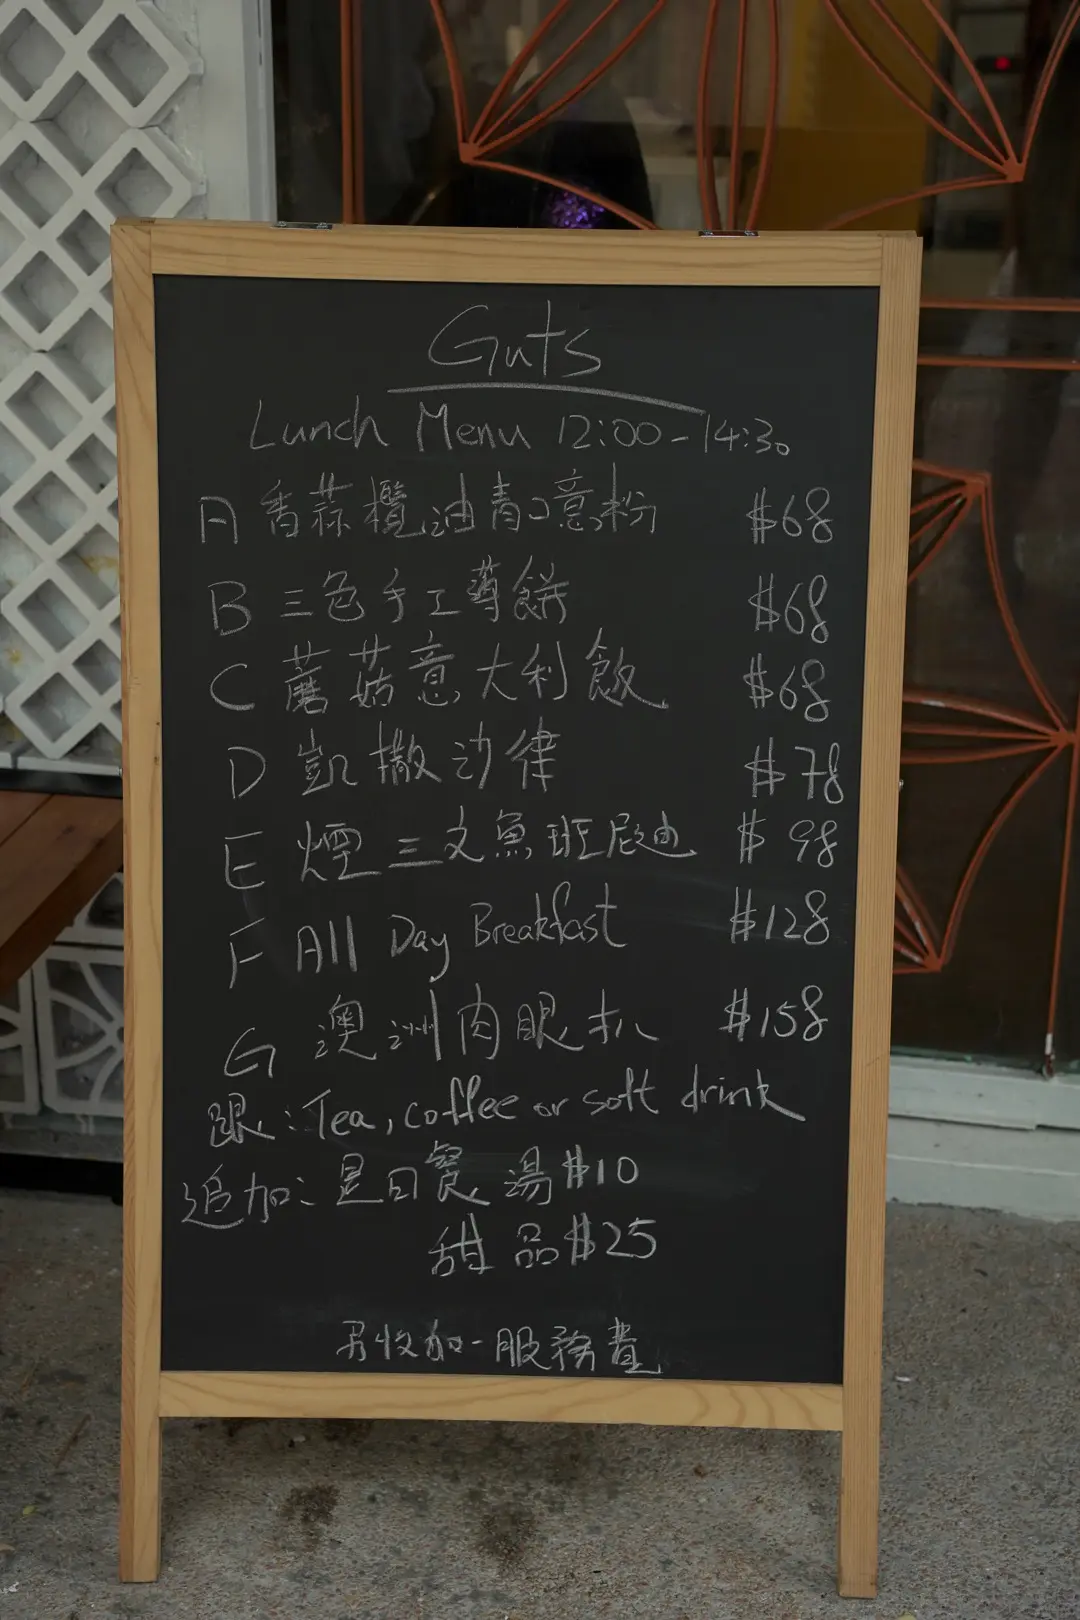 Guts
Lunch Menu 12:00-14:30
A 香蒜欖油青口意粉 $68
B 三色手工薄餅 $68
C 蘑菇意大利飯 $68
D 凱撒沙律 $78
E 煙三文魚班尼迪 $98
F All Day Breakfast $128
G 澳洲肉眼扒 $158
跟:Tea, coffee or soft drink
追加:是日餐湯$10
甜品$25
另收加一服務費